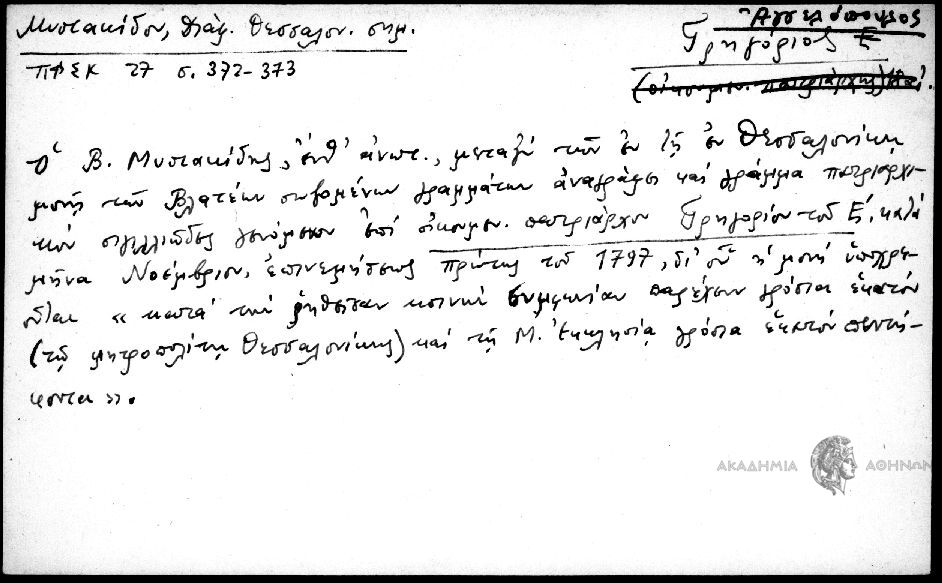 Μυστακίδου, Διάφ. Θεσσαλον. σημ.
ΠΦΣΚ 27 σ. 372-373
Ἀγγελόπουλος
Γρηγόριος Ε
(οἰκουμεν. πατριάρχης)
Ὁ Β. Μυστακίδης, ἔνθ' ἀνωτ., μεταξὺ τῶν ἐν τῇ ἐν Θεσσαλονίκῃ
μονῇ τῶν Βλατέων σωζομένων γραμμάτων ἀναγράφει καὶ γράμμα πατριαρχι-
κὸν σιγιλλιῶδες γενόμενον ἐπὶ οἰκουμεν. πατριάρχου Γρηγορίου τοῦ Ε΄, κατὰ
μῆνα Νοέμβριον, ἐπινεμήσεως πρώτης τοῦ 1797, δι' οὗ ἡ μονὴ ὑποχρε-
οῦται « κατὰ τὴν ῥηθεῖσαν κοινὴν συμφωνίαν παρέχειν γρόσια ἑκατὸν
(τῷ μητροπολίτῃ Θεσσαλονίκης) καὶ τῇ Μ. Ἐκκλησίᾳ γρόσια ἑκατὸν πεντή-
κοντα ».
ΑΚΑΔΗΜΙΑ ΑΘΗΝΩΝ